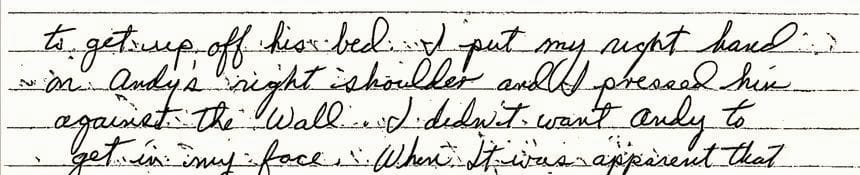 to get up off his bed. I put my right hand
on Andy's right shoulder and I pressed him
against the Wall. I didn't want Andy to
get in my face. When It was apparent that